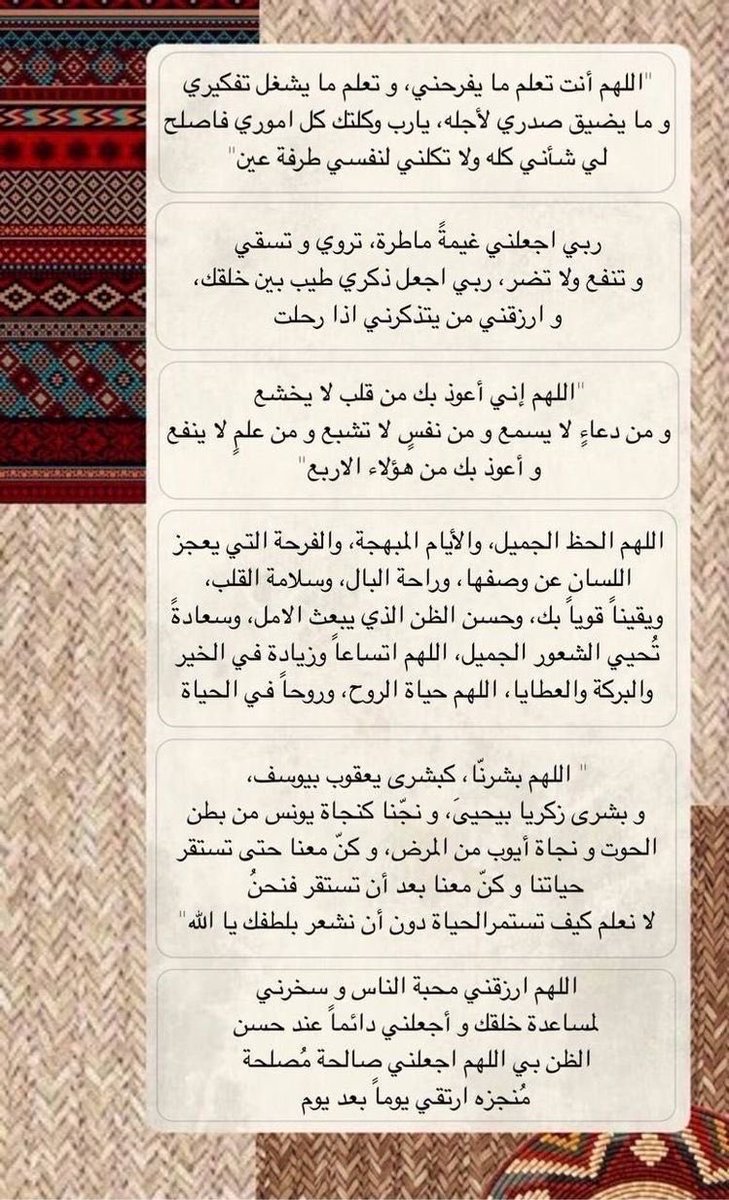 "اللهم أنت تعلم ما يفرحني، و تعلم ما يشغل تفكيري
و ما يضيق صدري لأجله، يارب وكلتك كل اموري فاصلح
لي شأني كله ولا تكلني لنفسي طرفة عين"
ربي اجعلني غيمةً ماطرة، تروي و تسقي
و تنفع ولا تضر، ربي اجعل ذكري طيب بين خلقك،
و ارزقني من يتذكرني اذا رحلت
"اللهم إني أعوذ بك من قلب لا يخشع
و من دعاءٍ لا يسمع و من نفسٍ لا تشبع و من علمٍ لا ينفع
و أعوذ بك من هؤلاء الاربع"
اللهم الحظ الجميل، والأيام المبهجة، والفرحة التي يعجز
اللسان عن وصفها، وراحة البال، وسلامة القلب،
ويقيناً قوياً بك، وحسن الظن الذي يبعث الامل، وسعادةً
تُحيي الشعور الجميل، اللهم اتساعاً وزيادة في الخير
والبركة والعطايا، اللهم حياة الروح، وروحاً في الحياة
" اللهم بشرنّا، كبشرى يعقوب بيوسف،
و بشرى زكريا بيحيىَ، و نجّنا كنجاة يونس من بطن
الحوت و نجاة أيوب من المرض، و كنّ معنا حتى تستقر
حياتنا و كنّ معنا بعد أن تستقر فنحنُ
لا نعلم كيف تستمرالحياة دون أن نشعر بلطفك يا الله"
اللهم ارزقني محبة الناس و سخرني
لمساعدة خلقك و أجعلني دائماً عند حسن
الظن بي اللهم اجعلني صالحة مُصلحة
مُنجزه ارتقي يوماً بعد يوم